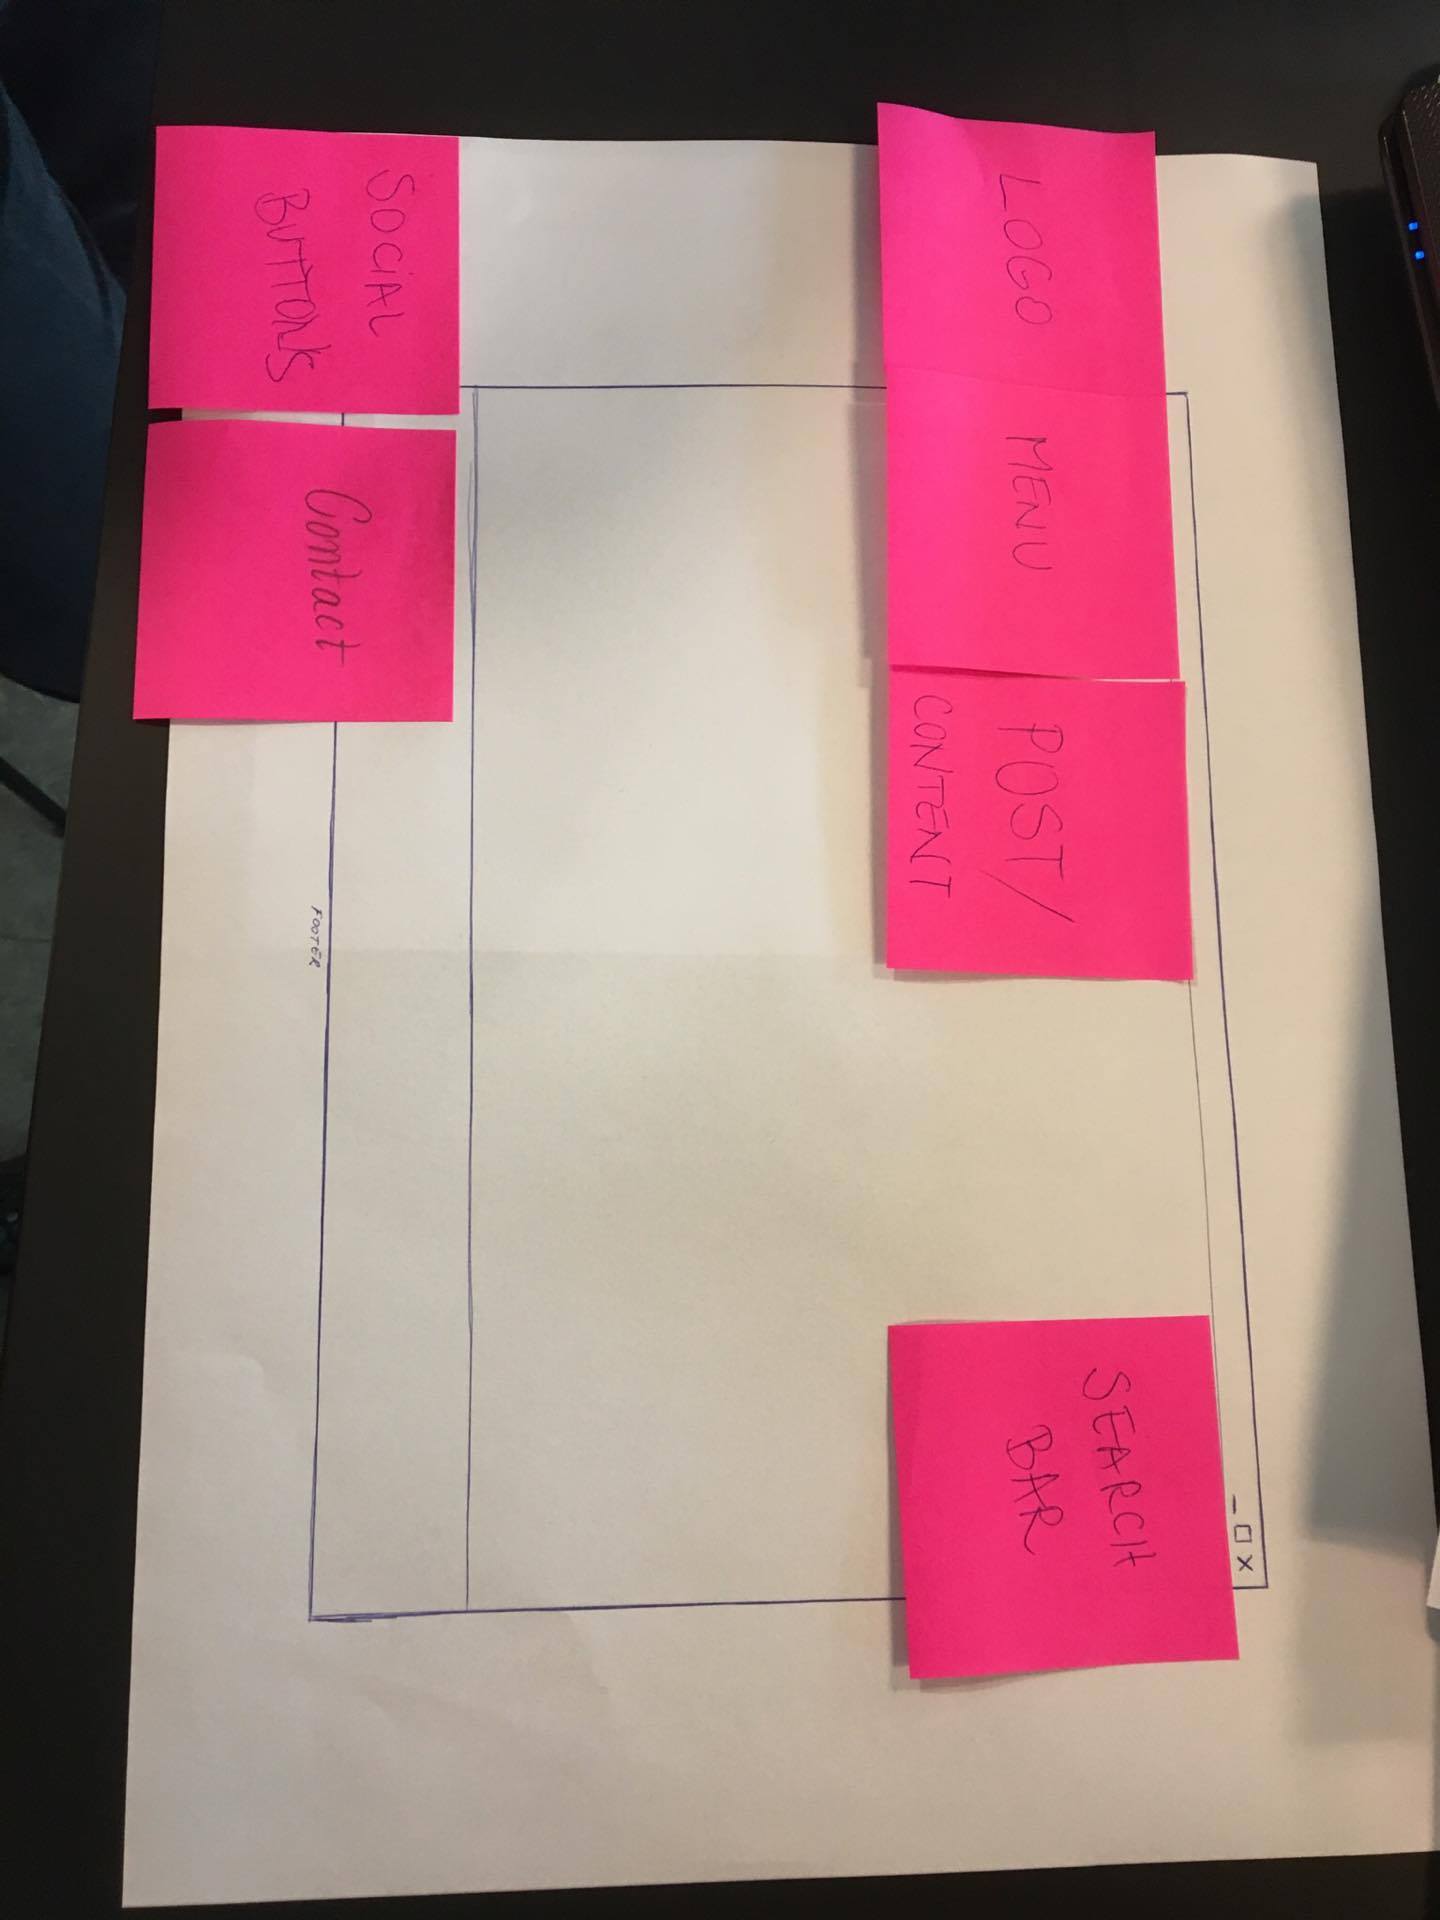 LOGO
MENU
POST/
CONTENT
SEARCH
BAR
SOCIAL
BUTTON'S
Contact
FOOTER